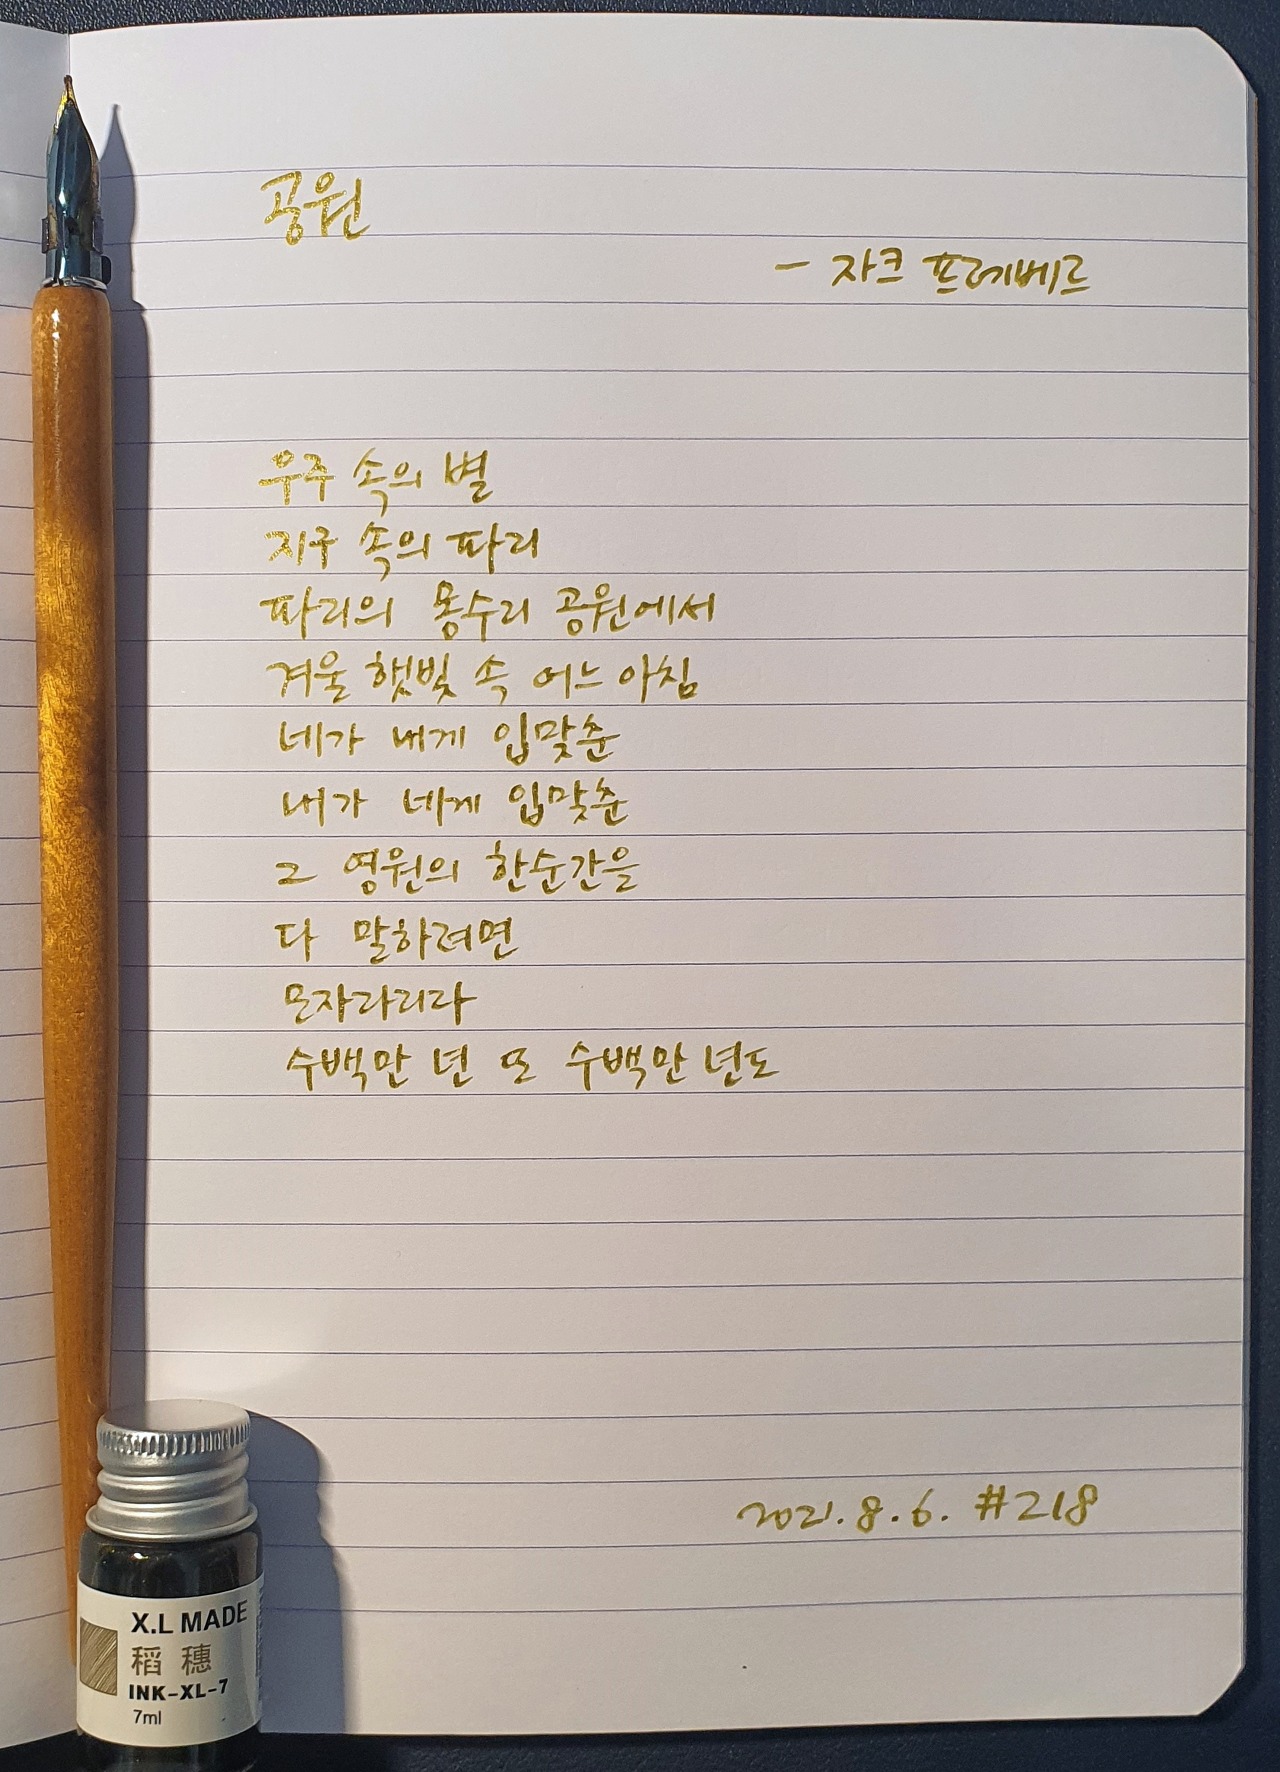 공원
- 자크 프레베르
우주 속의 별
지구 속의 파리
파리의 몽수리 공원에서
겨울 햇빛 속 어느 아침
네가 내게 입맞춘
내가 네게 입맞춘
그 영원의 한순간을
다 말하려면
모자라리라
수백만 년 또 수백만 년도
2021.8.6. #218
X.L MADE
稻穗
INK-XL-7
7ml